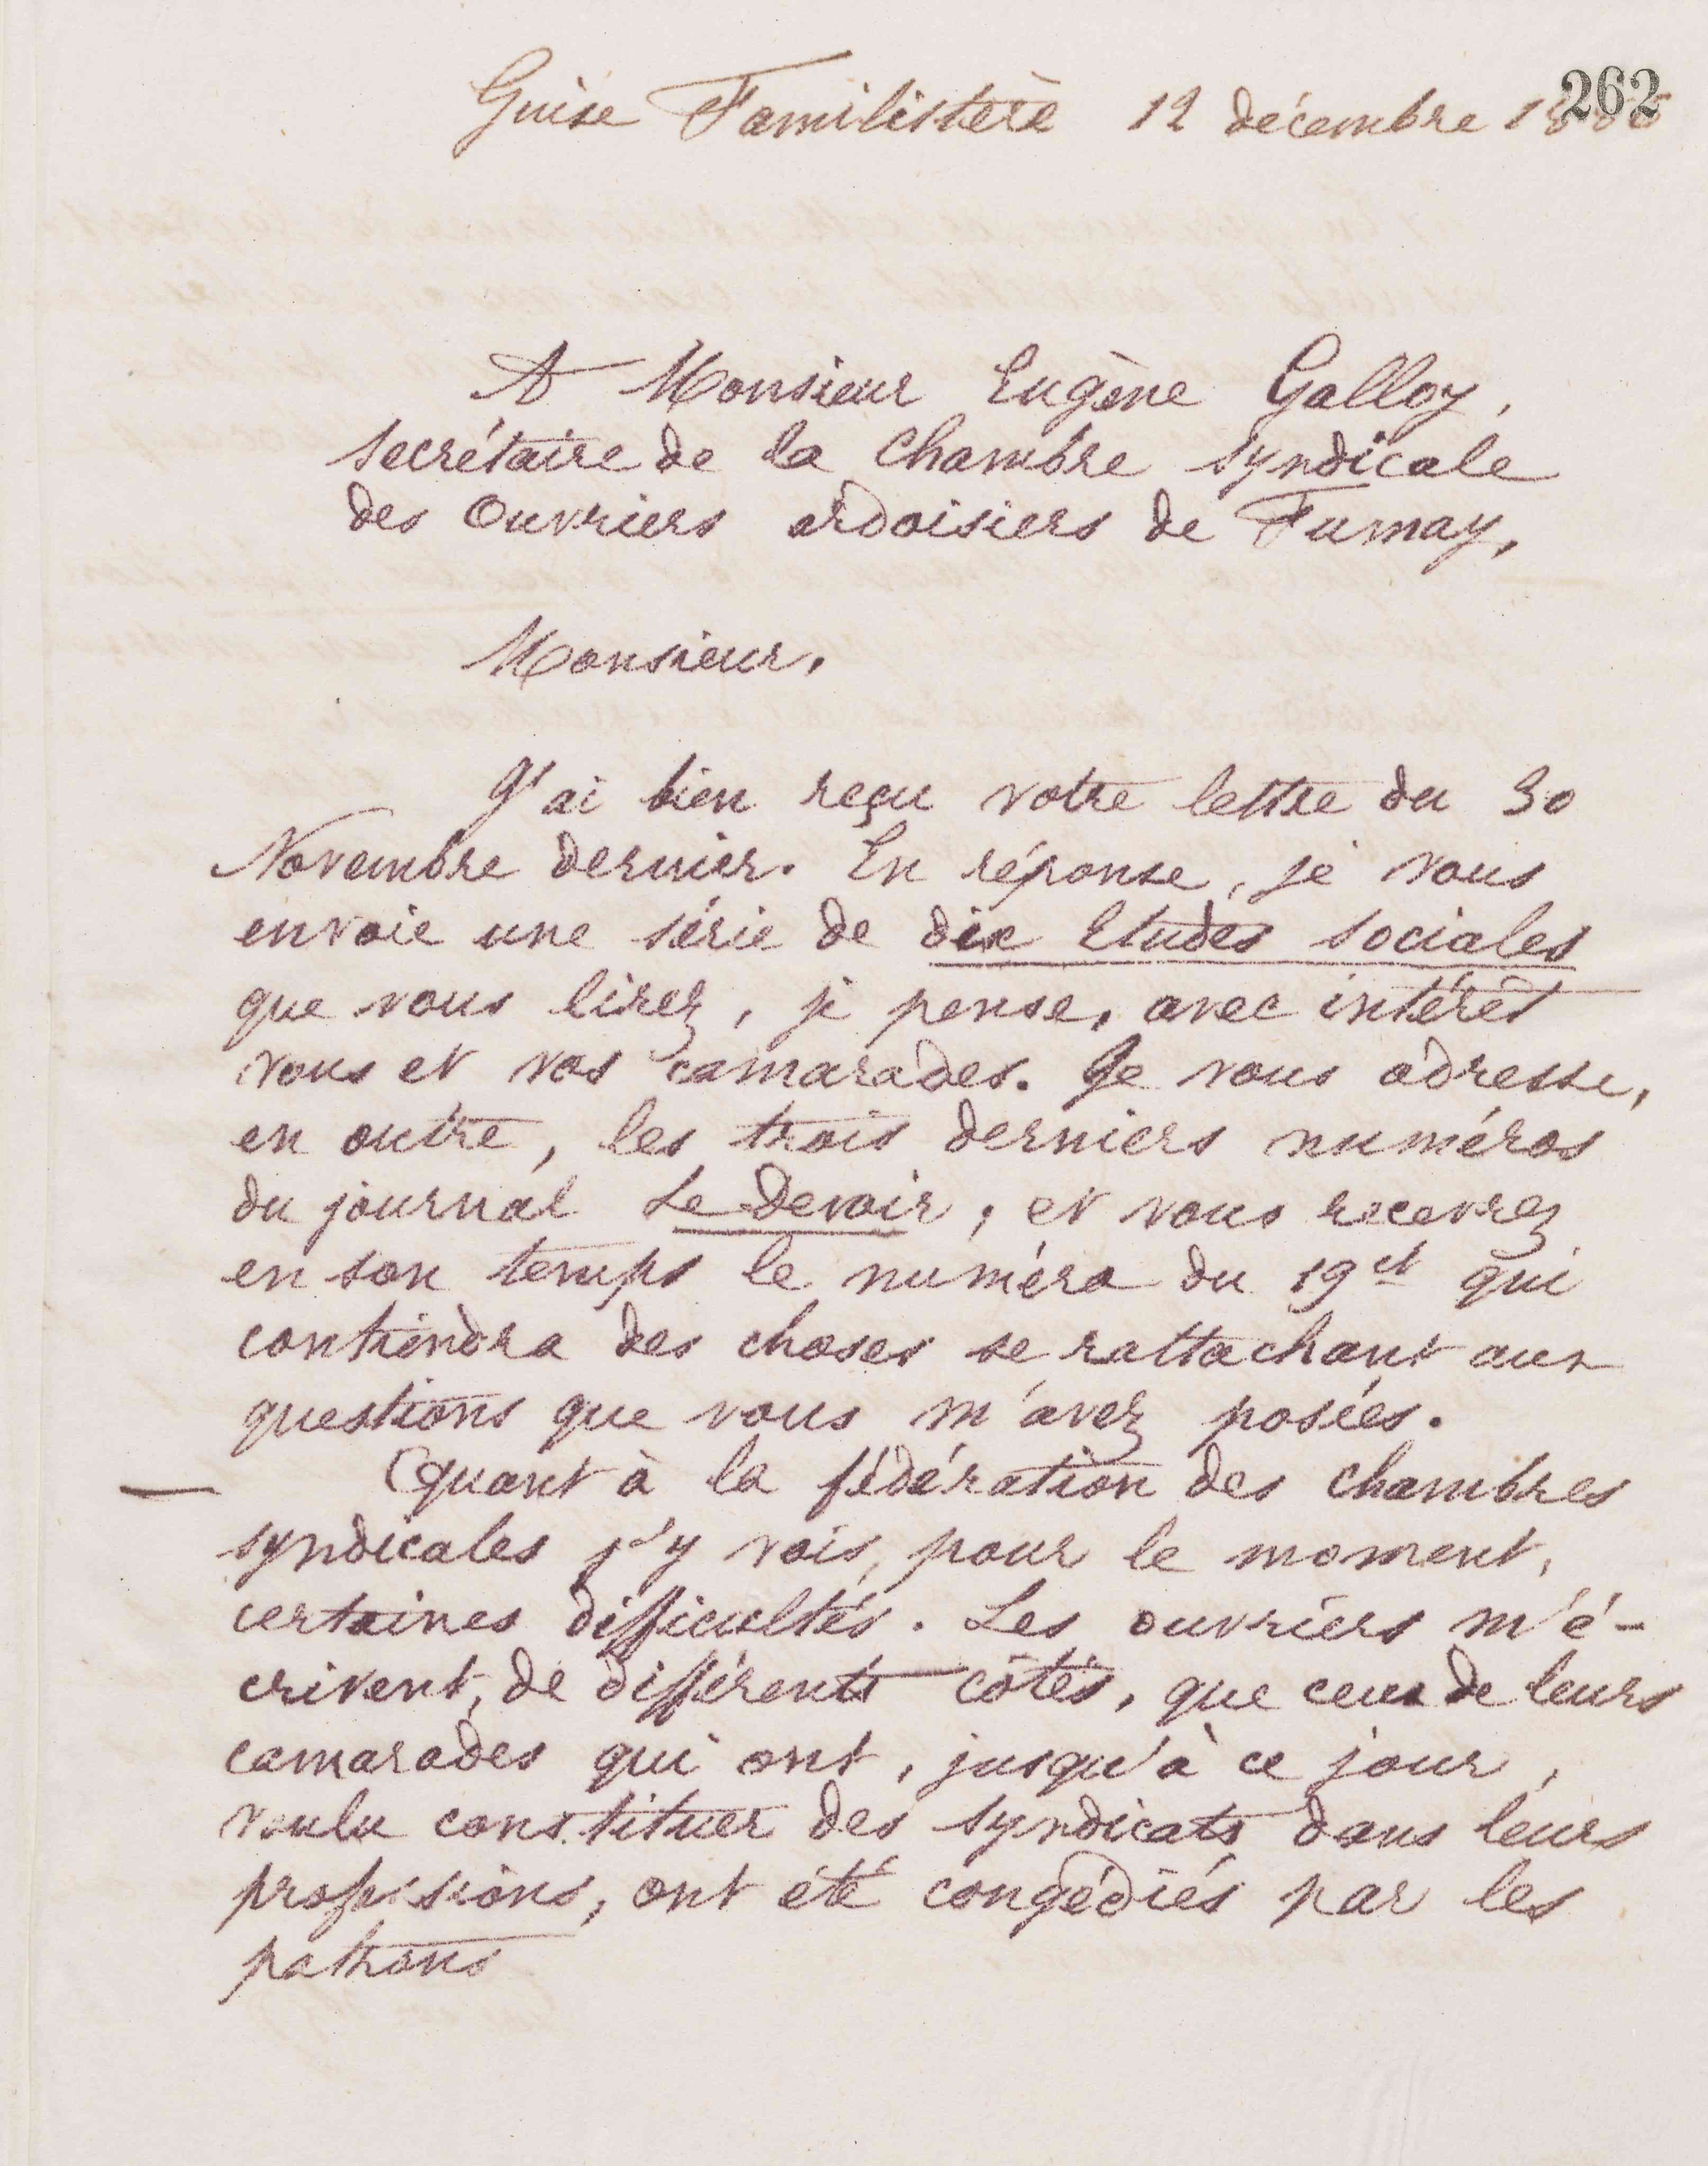 262
Guise Familistère 12 décembre
A Monsieur Eugène Galloy,
secrétaire de la Chambre syndicale
des Ouvriers ardoisiers de Fumay,
Monsieur,
J'ai bien reçu votre lettre du 30
Novembre dernier. En réponse, je vous
envoie une série de dix Etudes sociales
que vous lirez, je pense, avec intérêt
vous et vos camarades. Je vous adresse,
en outre, les trois derniers numéros
du journal Le Devoir, et vous recevrez
en son temps le numéro du 19 ct qui
contiendra des choses se rattachant aux
questions que vous m'avez posées.
— Quant à la fédération des chambres
syndicales j'y vois, pour le moment,
certaines difficultés. Les ouvriers m'é-
crivent, de différents côtés, que ceux de leurs
camarades qui ont, jusqu'à ce jour,
voulu constituer des syndicats dans leurs
professions, ont été congédiés par les
patrons